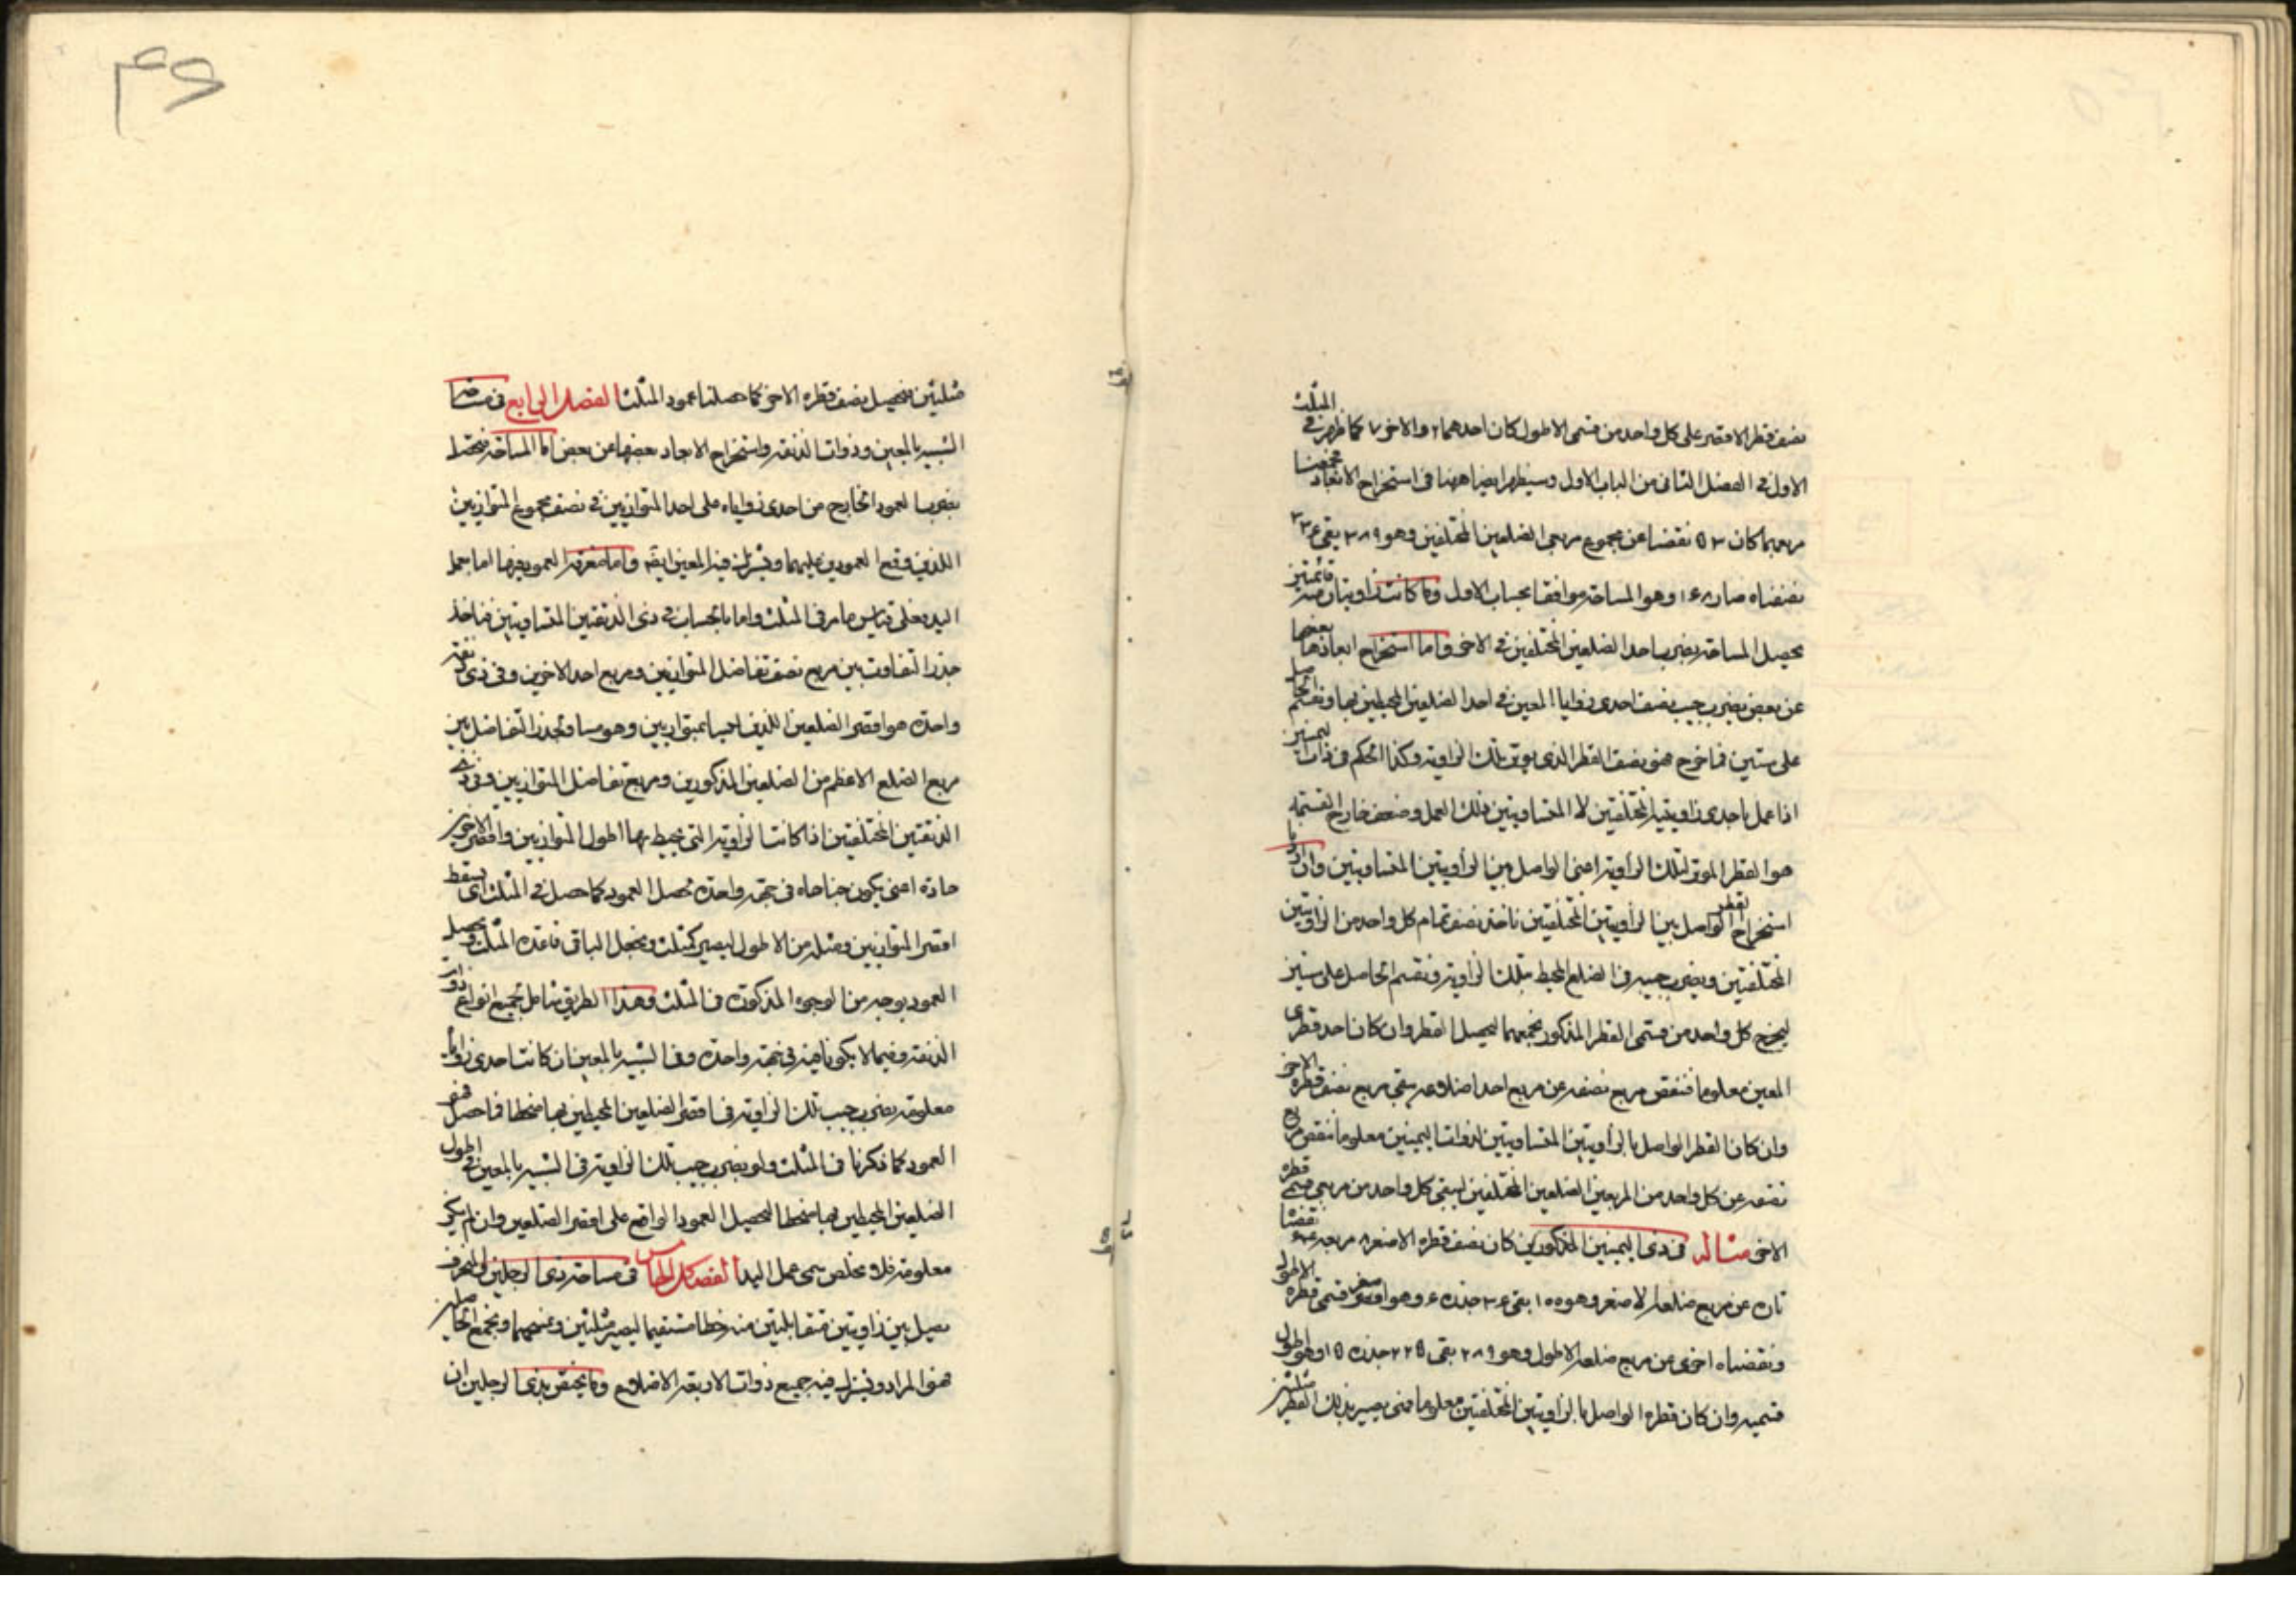 نصف قطر الاقصر على كل واحد من قسمى الاطول كان احدهما ٢ والاخر ٧ كما ظهر فى المثلث
الاول فى الفصل الثانى من الباب الاول وسيظهر ايضا ههنا فى استخراج الابعاد
مربعهما كان ٥٣ نقصنا عن مجموع مربعى الضلعين المختلفين وهو ٣٨٩ بقى
نصفناه صار ١٦٨ وهو المساحة موافقا بحساب الاول وما كانت زاويتان منه قائمتين
تحصيل المساحة بضرب احد الضلعين المختلفين فى الاخر واما استخراج ابعادها بعضها
عن بعض بضرب جيب نصف احدى زوايا المعين فى احد الضلعين المحيطين بها ونقسم الحاصل
على ستين فما خرج فهو نصف القطر الذى يوتر تلك الزاوية وكذا الحكم فى ذات اليمينين
اذا عمل باحدى زاويتيه المختلفتين لا المتساويتين ذلك العمل وضعف خارج القسمة
هو القطر الموتر لتلك الزاوية اعنى الواصل بين الزاويتين المتساويتين وان اردنا
استخراج القطر الواصل بين الزاويتين المختلفتين ناخذ نصف تمام كل واحد من الزاويتين
المختلفتين ونضرب جيبه فى الضلع المحيط بتلك الزاوية ونقسم الحاصل على ستين
ليخرج كل واحد من قسمى القطر المذكور نجمعهما ليحصل القطر وان كان احد قطرى
المعين معلوما فننقص مربع نصفه عن مربع احد اضلاعه بقى مربع نصف قطره الاخر
وان كان القطر الواصل بالزاويتين المتساويتين لذوات اليمينين معلوما ننقص مربع
نصفه عن كل واحد من المربعين الضلعين المختلفين ليبقى كل واحد من مربعى قسمى قطره
الاخر مثاله فى ذى اليمينين المذكورين كان نصف قطره الاصغر ٨ مربعه ٦٤ نقصنا
تارة عن مربع ضلعه الاصغر وهو ١٠٠ بقى ٣٦ جذره ٦ وهو اصغر قسمى قطره الاطول
ونقصناه اخرى من مربع ضلعه الاطول وهو ٢٨٩ بقى ٢٢٥ جذره ١٥ وهو اطول
قسميه وان كان قطره الواصل بالزاويتين المختلفتين معلوما فهى يصير بذلك القطر مثلثين
٤٦
مثلثين فنحصل نصف قطره الاخر كما حصلنا عمود المثلث الفصل الرابع فى مساحة
الشبيه بالمعين وذوات الذنقة واستخراج الابعاد بعضها عن بعض اما المساحة فتحصل
بضرب العمود الخارج من احدى زواياه على احد المتوازيين فى نصف مجموع المتوازيين
اللذين وقع العمودين عليهما ويشترك فيه المعين ايضه واما معرفة العمود فيها اما بعمل
اليد فعلى قياس ما مر فى المثلث واما بالحساب فى ذى الذنقتين المتساويتين فناخذ
جذر التفاوت بين مربع نصف تفاضل المتوازيين ومربع احد الاخرين وفى ذى ذنقة
واحدة هو اقصر الضلعين اللذين ليسا بمتوازيين وهو مساو لجذر التفاضل بين
مربع الضلع الاعظم من الضلعين المذكورين ومربع تفاضل المتوازيين وفى ذى
الذنقتين المختلفتين اذا كانت الزاوية التى يحيط بها اطول المتوازيين واقصر الاخرين
حادة اعنى يكون جناحاه فى جهة واحدة نحصل العمود كما حصل فى المثلث اى يسقط
اقصر المتوازيين ومثله من الاطول ليصير كمثلث ونجعل الباقى قاعدة المثلث ونحصل
العمود بوجه من الوجوه المذكورة فى المثلث وهذا الطريق شامل لجميع انواع ذوات
الذنقة وفيما لا يكونا منه فى جهة واحدة وفى الشبيه بالمعين ان كانت احدى زواياه
معلومة نضرب جيب تلك الزاوية فى اقصر الضلعين المحيطين بها منحطا فما حصل فهو
العمود كما ذكرنا فى المثلث ولو نضرب جيب تلك الزاوية فى الشبيه بالمعين فى اطول
الضلعين المحيطين بها منحطا ليحصل العمود الواقع على اقصر الضلعين وان لم يكن
معلومة فلا مخلص سوى عمل اليد الفصل الخامس فى مساحة ذى الرجلين والمنحرف
نصل بين زاويتين متقابلتين منه خطا مستقيما ليصير مثلثين ونمسحهما ونجمع الحاصلين
فهو المراد ويشترك فيه جميع ذوات الاربعة الاضلاع وما يختص بذى الرجلين ان